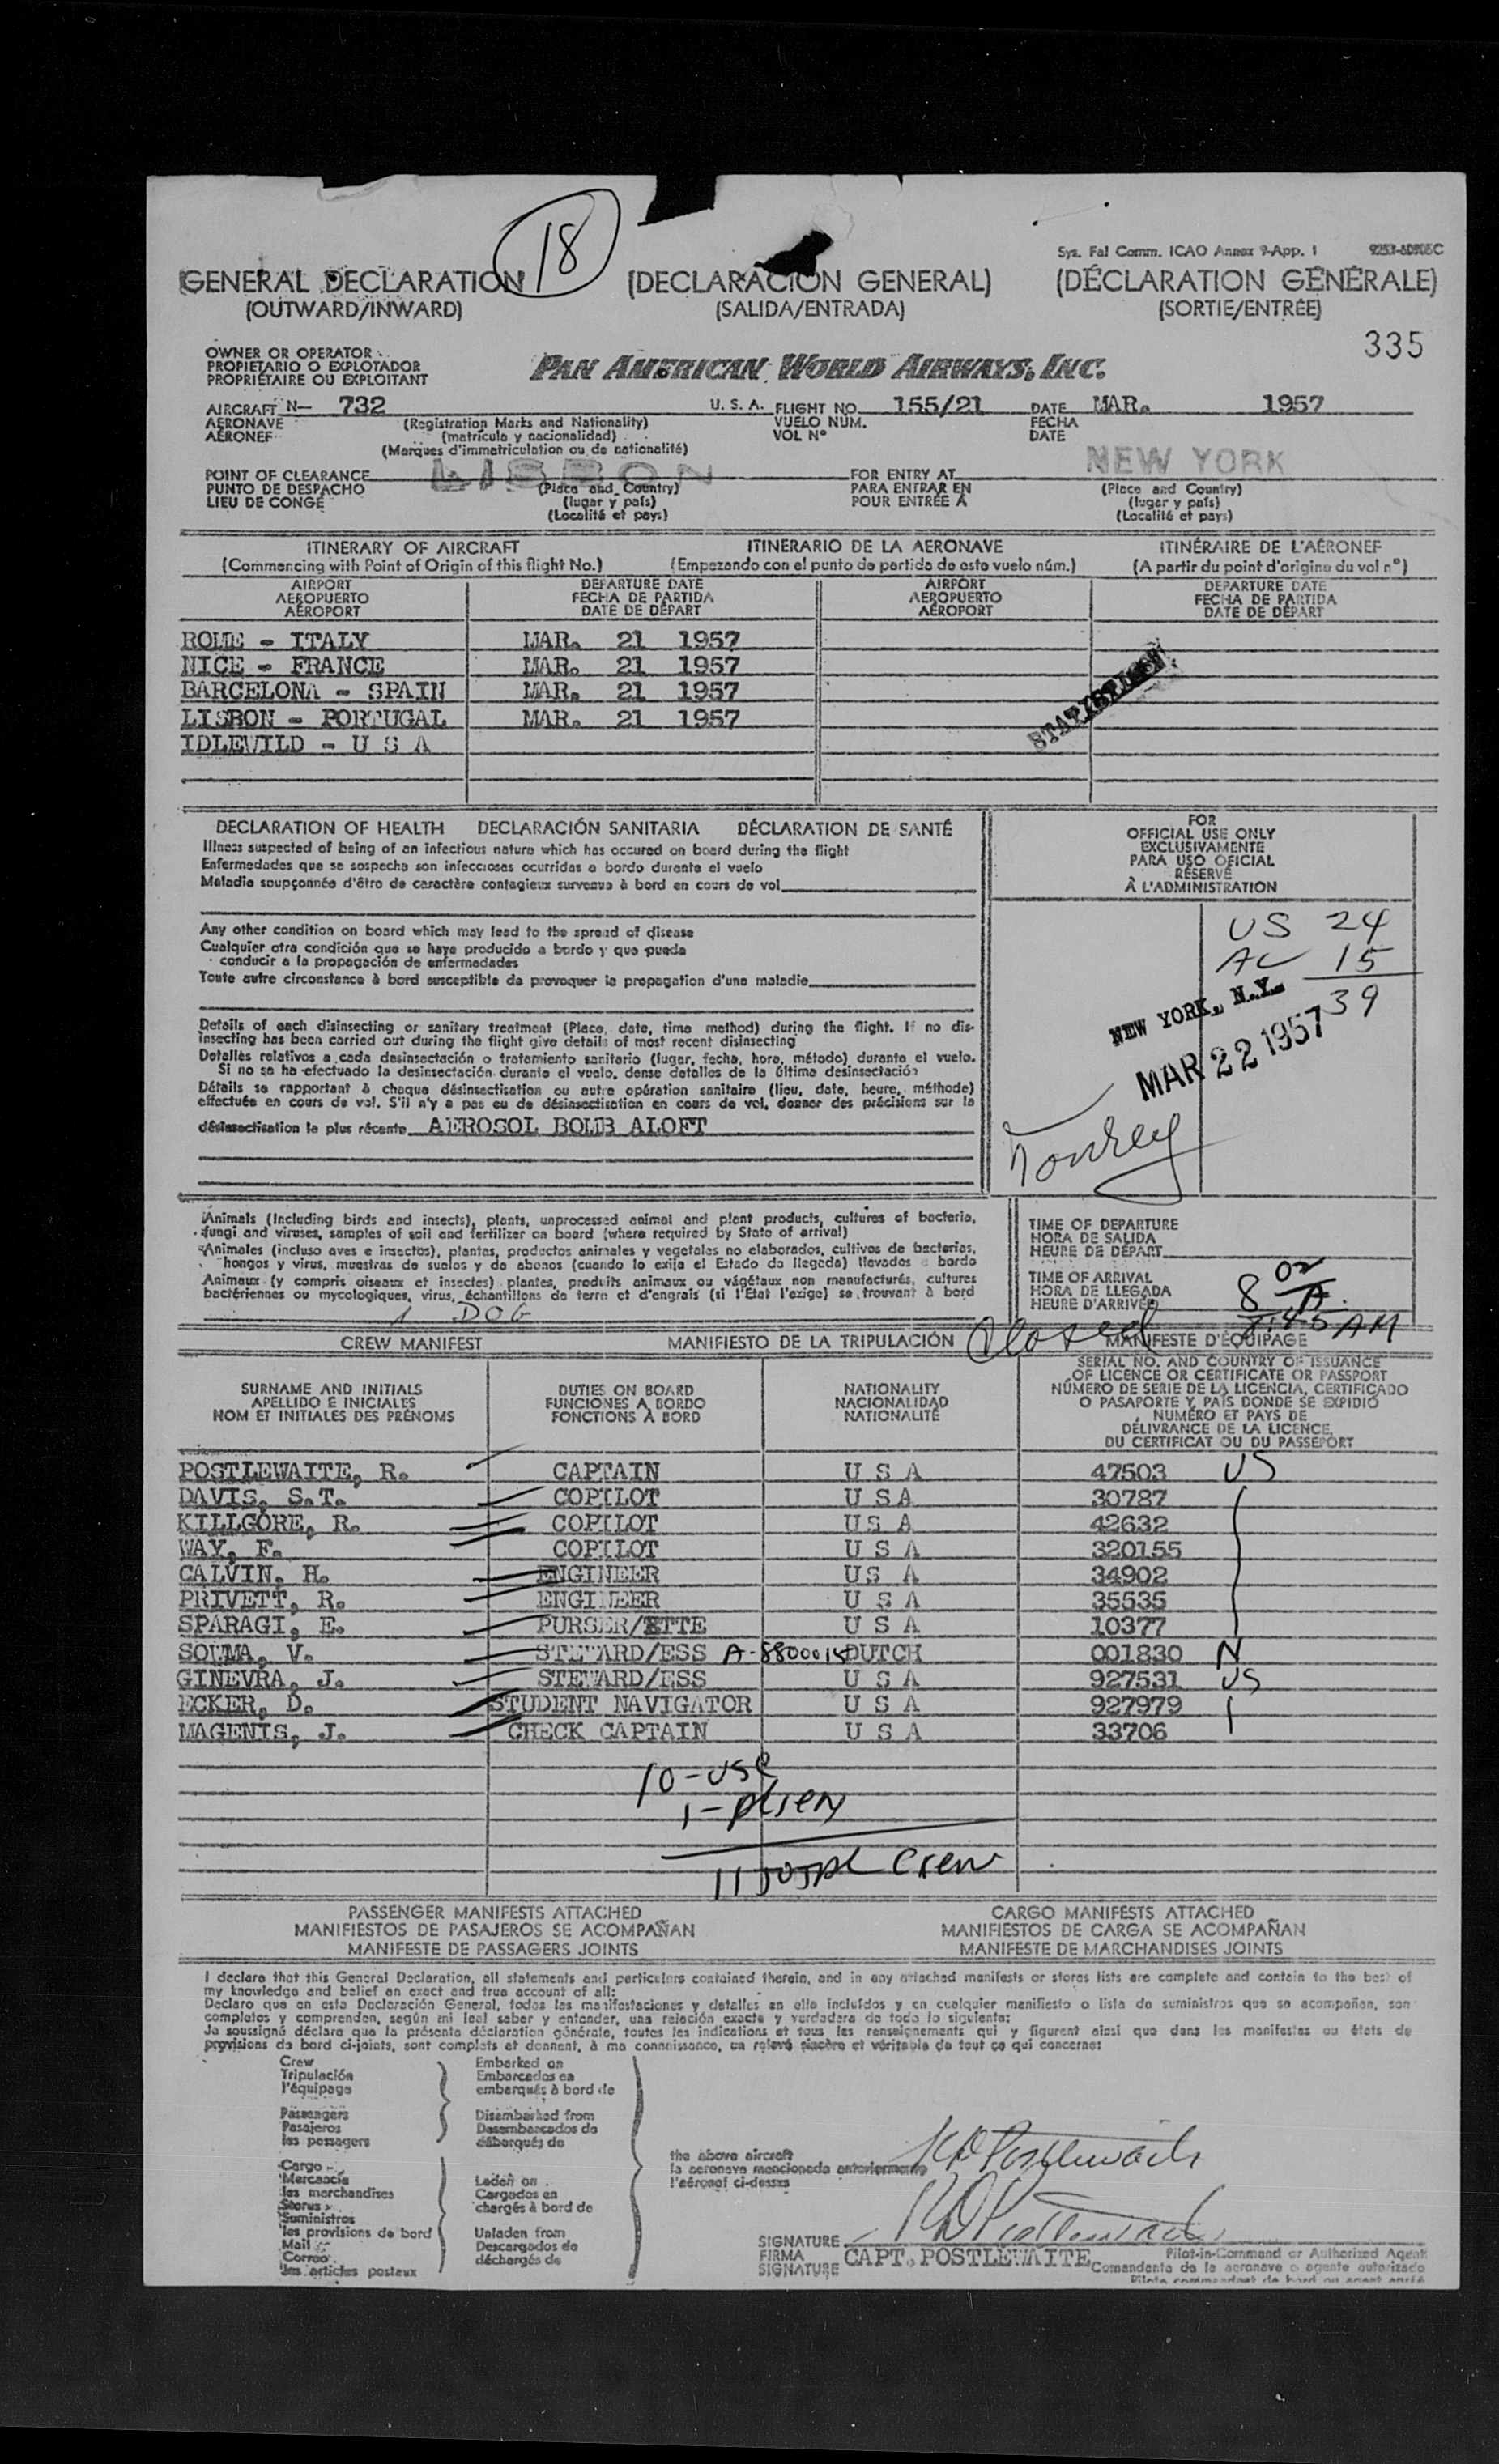 18
Sys. Fal Comm. ICAO Annex 9-App. 1
GENERAL DECLARATION (DECLARACIÓN GENERAL) (DÉCLARATION GÉNÉRALE)
(OUTWARD/INWARD) (SALIDA/ENTRADA) (SORTIE/ENTRÉE)
335
OWNER OR OPERATOR
PROPIETARIO O EXPLOTADOR
PROPRIÉTAIRE OU EXPLOITANT
PAN AMERICAN WORLD AIRWAYS, INC.
AIRCRAFT N- 732 U. S. A. FLIGHT NO. 155/21 DATE MAR. 1957
AERONAVE (Registration Marks and Nationality) VUELO NÚM. FECHA
AÉRONEF (matrícula y nacionalidad) VOL Nº DATE
(Marques d'immatriculation ou de nationalité)
POINT OF CLEARANCE LISBON FOR ENTRY AT NEW YORK
PUNTO DE DESPACHO (Place and Country) PARA ENTRAR EN (Place and Country)
LIEU DE CONGÉ (lugar y país) POUR ENTRÉE À (lugar y país)
(Localité et pays) (Localité et pays)
ITINERARY OF AIRCRAFT ITINERARIO DE LA AERONAVE ITINÉRAIRE DE L'AÉRONEF
(Commencing with Point of Origin of this flight No.) (Empezando con el punto de partida de este vuelo núm.) (A partir du point d'origine du vol nº)
AIRPORT DEPARTURE DATE AIRPORT DEPARTURE DATE
AEROPUERTO FECHA DE PARTIDA AEROPUERTO FECHA DE PARTIDA
AÉROPORT DATE DE DÉPART AÉROPORT DATE DE DÉPART
ROME - ITALY MAR. 21 1957
NICE - FRANCE MAR. 21 1957
BARCELONA - SPAIN MAR. 21 1957
LISBON - PORTUGAL MAR. 21 1957
IDLEWILD - U S A
DECLARATION OF HEALTH DECLARACIÓN SANITARIA DÉCLARATION DE SANTÉ
Illness suspected of being of an infectious nature which has occured on board during the flight
Enfermedades que se sospecha son infecciosas ocurridas a bordo durante el vuelo
Maladie soupçonnée d'être de caractère contagieux survenue à bord en cours de vol
Any other condition on board which may lead to the spread of disease
Cualquier otra condición que se haya producido a bordo y que pueda
conducir a la propagación de enfermedades
Toute autre circonstance à bord susceptible de provoquer la propagation d'une maladie
Details of each disinsecting or sanitary treatment (Place, date, time method) during the flight. If no dis-
insecting has been carried out during the flight give details of most recent disinsecting
Detalles relativos a cada desinsectación o tratamiento sanitario (lugar, fecha, hora, método) durante el vuelo.
Si no se ha efectuado la desinsectación durante el vuelo, dense detalles de la última desinsectación
Détails se rapportant à chaque désinsectisation ou autre opération sanitaire (lieu, date, heure, méthode)
effectuée en cours de vol. S'il n'y a pas eu de désinsectisation en cours de vol, donner des précisions sur la
désinsectisation la plus récente AEROSOL BOMB ALOFT
FOR
OFFICIAL USE ONLY
EXCLUSIVAMENTE
PARA USO OFICIAL
RÉSERVÉ
À L'ADMINISTRATION
US 24
AL 15
39
NEW YORK, N.Y.
MAR 22 1957
Animals (Including birds and insects), plants, unprocessed animal and plant products, cultures of bacteria,
fungi and viruses, samples of soil and fertilizer on board (where required by State of arrival)
Animales (incluso aves e insectos), plantas, productos animales y vegetales no elaborados, cultivos de bacterias,
hongos y virus, muestras de suelos y de abonos (cuando lo exija el Estado de llegada) llevados a bordo
Animaux (y compris oiseaux et insectes) plantes, produits animaux ou végétaux non manufacturés, cultures
bactériennes ou mycologiques, virus, échantillons de terre et d'engrais (si l'Etat l'exige) se trouvant à bord
1 DOG
TIME OF DEPARTURE
HORA DE SALIDA
HEURE DE DÉPART
TIME OF ARRIVAL
HORA DE LLEGADA
HEURE D'ARRIVÉE
8 02 A.
Closed 8:45 AM
CREW MANIFEST MANIFIESTO DE LA TRIPULACIÓN MANIFESTE D'ÉQUIPAGE
SURNAME AND INITIALS
APELLIDO E INICIALES
NOM ET INITIALES DES PRÉNOMS
DUTIES ON BOARD
FUNCIONES A BORDO
FONCTIONS À BORD
NATIONALITY
NACIONALIDAD
NATIONALITÉ
SERIAL NO. AND COUNTRY OF ISSUANCE
OF LICENCE OR CERTIFICATE OR PASSPORT
NÚMERO DE SERIE DE LA LICENCIA, CERTIFICADO
O PASAPORTE Y PAÍS DONDE SE EXPIDIÓ
NUMÉRO ET PAYS DE
DÉLIVRANCE DE LA LICENCE,
DU CERTIFICAT OU DU PASSEPORT
POSTLEWAITE, R. CAPTAIN U S A 47503 US
DAVIS, S.T. COPILOT U S A 30787
KILLGORE, R. COPILOT US A 42632
WAY, F. COPILOT U S A 320155
CALVIN, H. ENGINEER US A 34902
PRIVETT, R. ENGINEER U S A 35535
SPARAGI, E. PURSER/ETTE U S A 10377
SOUMA, V. STEWARD/ESS A-8800015 DUTCH 001830 N
GINEVRA, J. STEWARD/ESS U S A 927531 US
ECKER, D. STUDENT NAVIGATOR U S A 927979
MAGENIS, J. CHECK CAPTAIN U S A 33706
10-USC
1-alien
11 crew
PASSENGER MANIFESTS ATTACHED CARGO MANIFESTS ATTACHED
MANIFIESTOS DE PASAJEROS SE ACOMPAÑAN MANIFIESTOS DE CARGA SE ACOMPAÑAN
MANIFESTE DE PASSAGERS JOINTS MANIFESTE DE MARCHANDISES JOINTS
I declare that this General Declaration, all statements and particulars contained therein, and in any attached manifests or stores lists are complete and contain to the best of
my knowledge and belief an exact and true account of all:
Declaro que en esta Declaración General, todas las manifestaciones y detalles en ella incluídos y en cualquier manifiesto o lista de suministros que se acompañen, son
completos y comprenden, según mi leal saber y entender, una relación exacta y verdadera de todo lo siguiente:
Je soussigné déclare que la présente déclaration générale, toutes les indications et tous les renseignements qui y figurent ainsi que dans les manifestes ou états de
provisions de bord ci-joints, sont complets et donnent, à ma connaissance, un relevé sincère et véritable de tout ce qui concerne:
Crew
Tripulación
l'équipage
Passengers
Pasajeros
les passagers
Cargo
Mercancía
les marchandises
Stores
Suministros
les provisions de bord
Mail
Correo
les articles postaux
Embarked on
Embarcados en
embarqués à bord de
Disembarked from
Desembarcados de
débarqués de
Laden on
Cargados en
chargés à bord de
Unladen from
Descargados de
déchargés de
the above aircraft
la aeronave mencionada anteriormente
l'aéronef ci-dessus
RD Postlewaite
RD Postlewaite
SIGNATURE
FIRMA CAPT. POSTLEWAITE
SIGNATURE
Pilot-in-Command or Authorized Agent
Comandante de la aeronave o agente autorizado
Pilote commandant de bord ou agent agréé